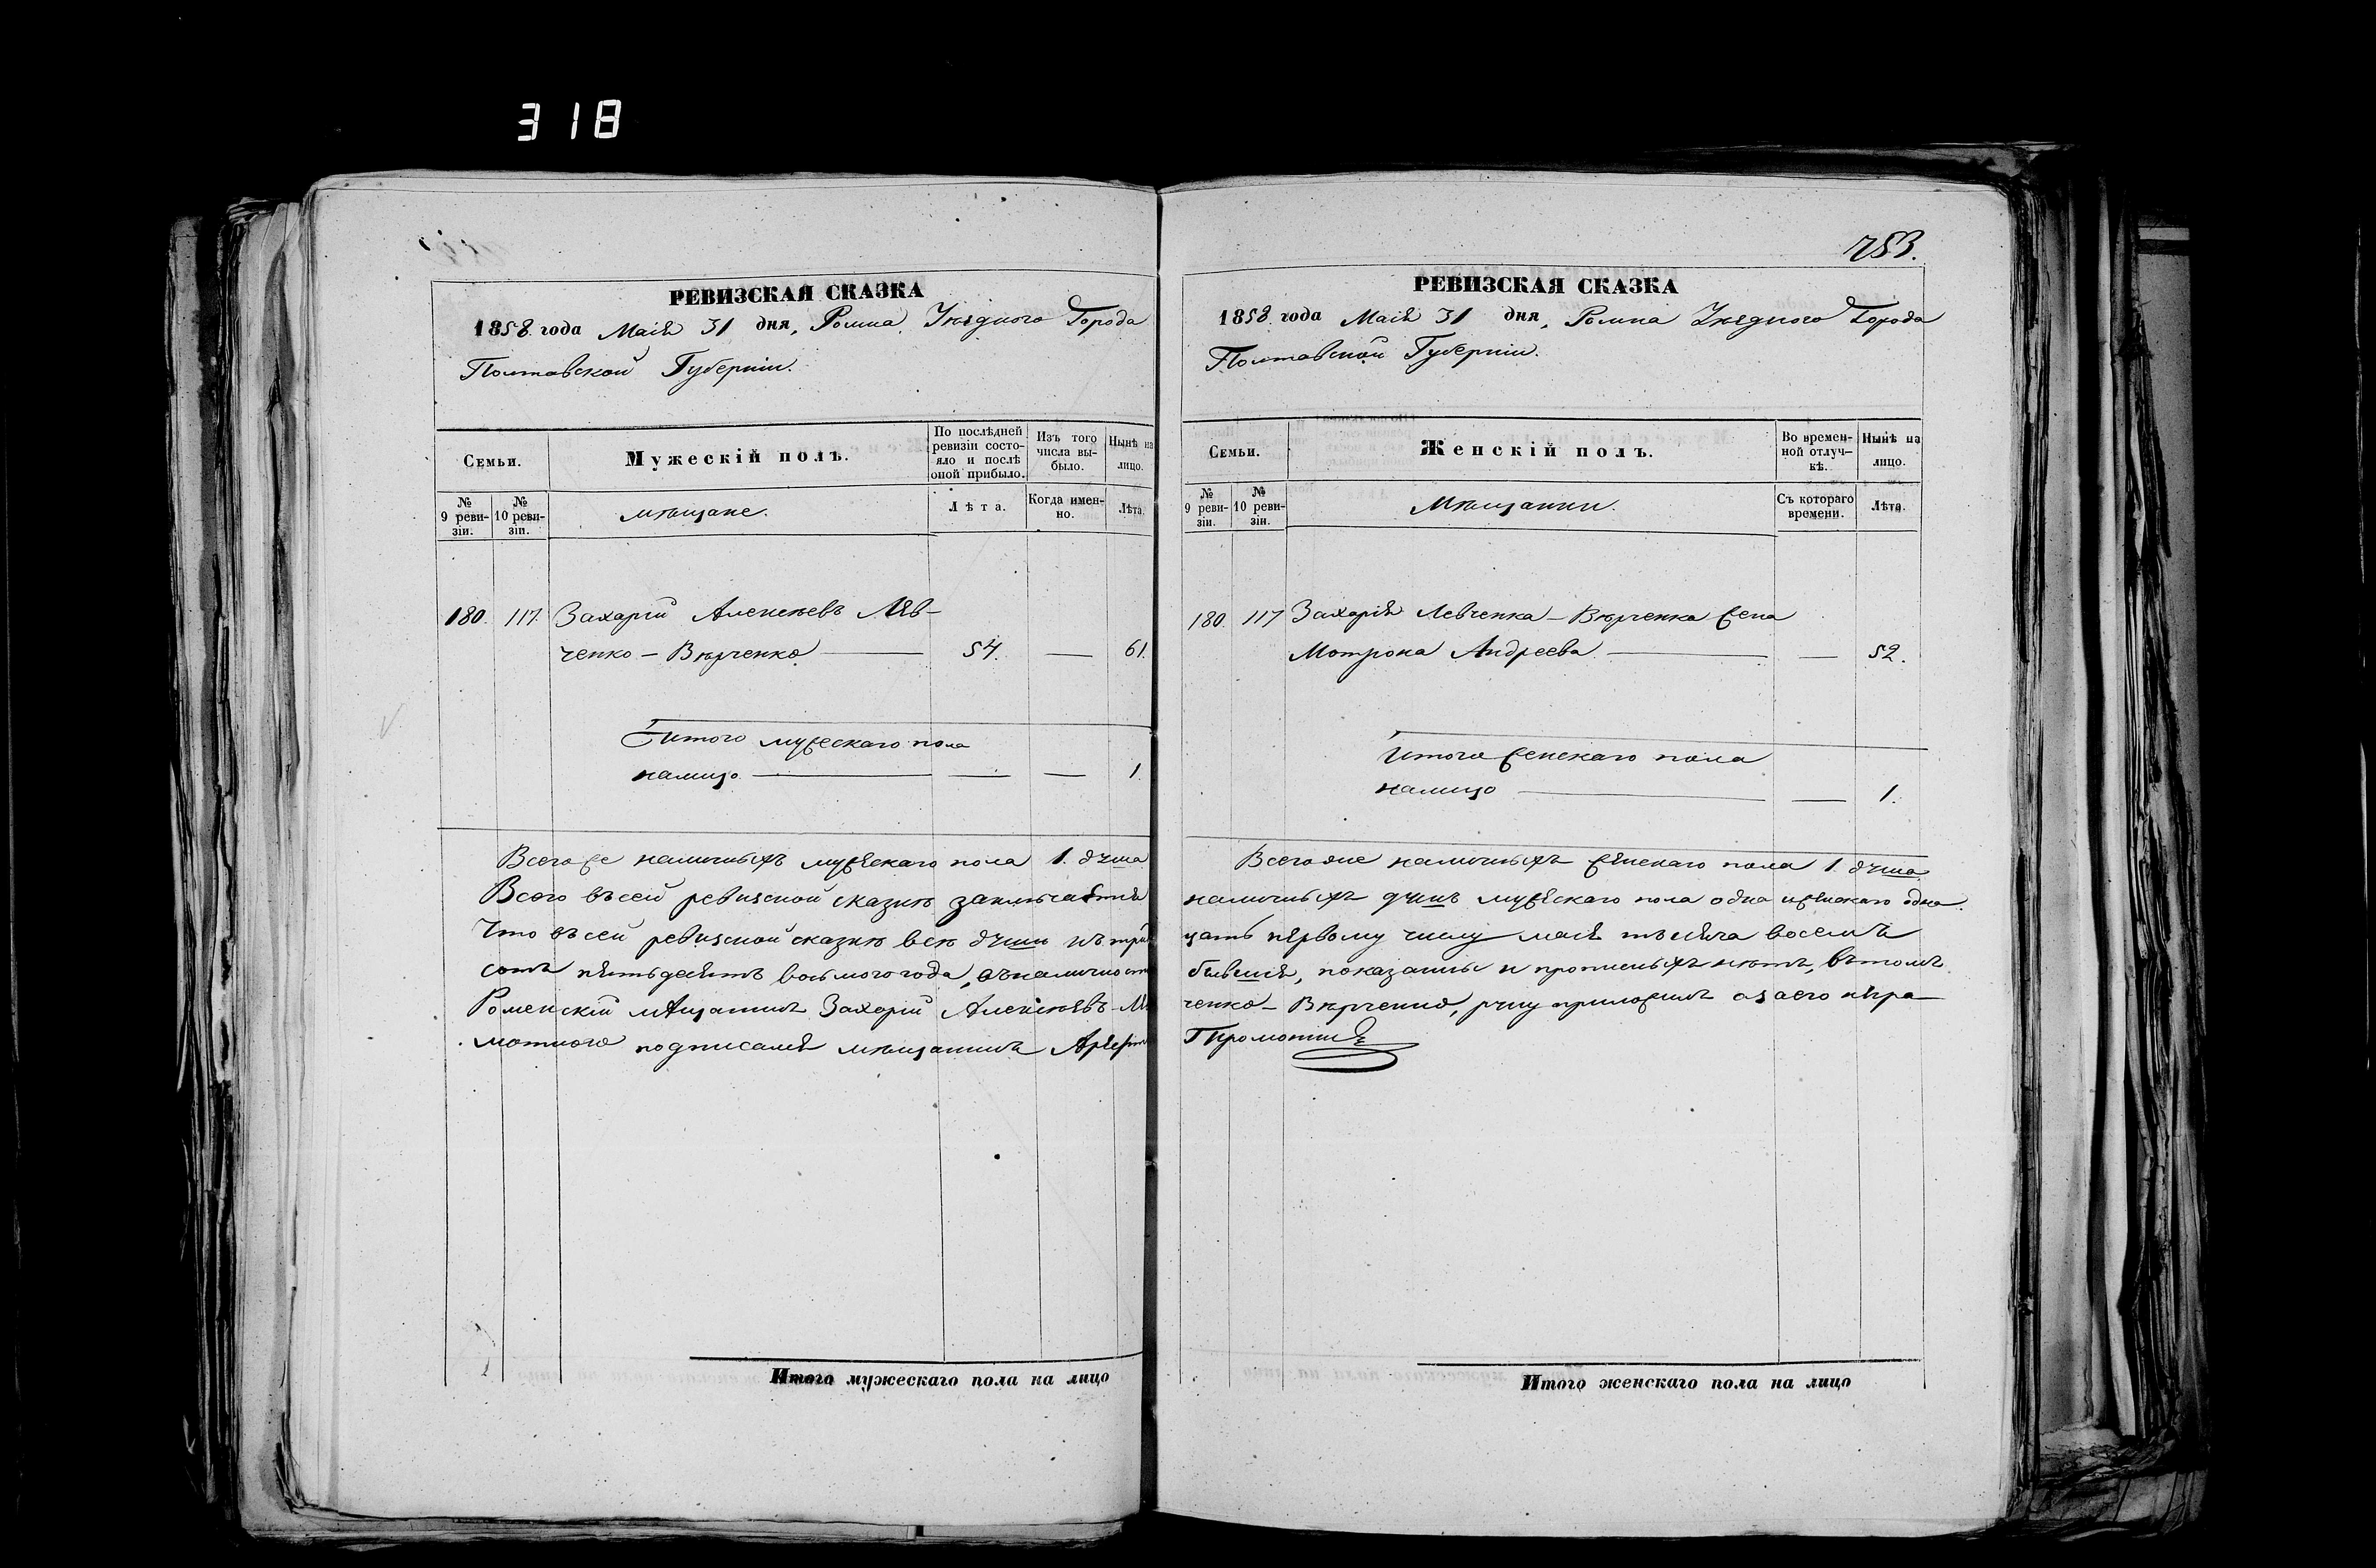 318
753.
РЕВИЗСКАЯ СКАЗКА
1858. года Маія 31 дня, Ромна Уѣзднаго Города
Полтавской Губерніи.
Семьи.
Мужескій полъ.
По послѣдней ревизіи состояло и послѣ оной прибыло.
Изъ того числа выбыло.
Нынѣ на лицо.
№ 9 ревизіи.
№ 10 ревизіи.
мѣщане.
Лѣта.
Когда именно.
Лѣта.
180. 117. Захарій Алексѣевъ Лев-
ченко – Вѣрченко 54. — 61.
Итого мужескаго пола
налицо — — 1.
Всегоже наличныхъ мужескаго пола 1. душа
Всего въ сей ревизской сказкѣ заключается
Что въ сей ревизской сказкѣ всѣ души къ три
сотъ пятьдесятъ восьмого года, въ наличности
Роменскій мѣщанинъ Захарій Алексѣевъ
мотнаго подписался мѣщанинъ
Итого мужескаго пола на лицо
РЕВИЗСКАЯ СКАЗКА
1858. года Маія 31 дня, Ромна Уѣзднаго Города
Полтавской Губерніи.
Семьи.
Женскій полъ.
Во временной отлучкѣ.
Нынѣ на лицо.
№ 9 ревизіи.
№ 10 ревизіи.
Мѣщанки.
Съ котораго времени.
Лѣта.
180. 117 Захарія Левченка – Вѣрченка жена
Мотрона Андреева — 52.
Итого женскаго пола
налицо — 1.
Всегоже наличныхъ женскаго пола 1. душа
наличныхъ душъ мужескаго пола одна и женскаго одна.
цать первому числу маія тысяча восемъ
бывшія, показаны и прописныхъ нѣтъ, въ томъ
ченко – Вѣрченко, руку приложилъ а за его негра-
Итого женскаго пола на лицо